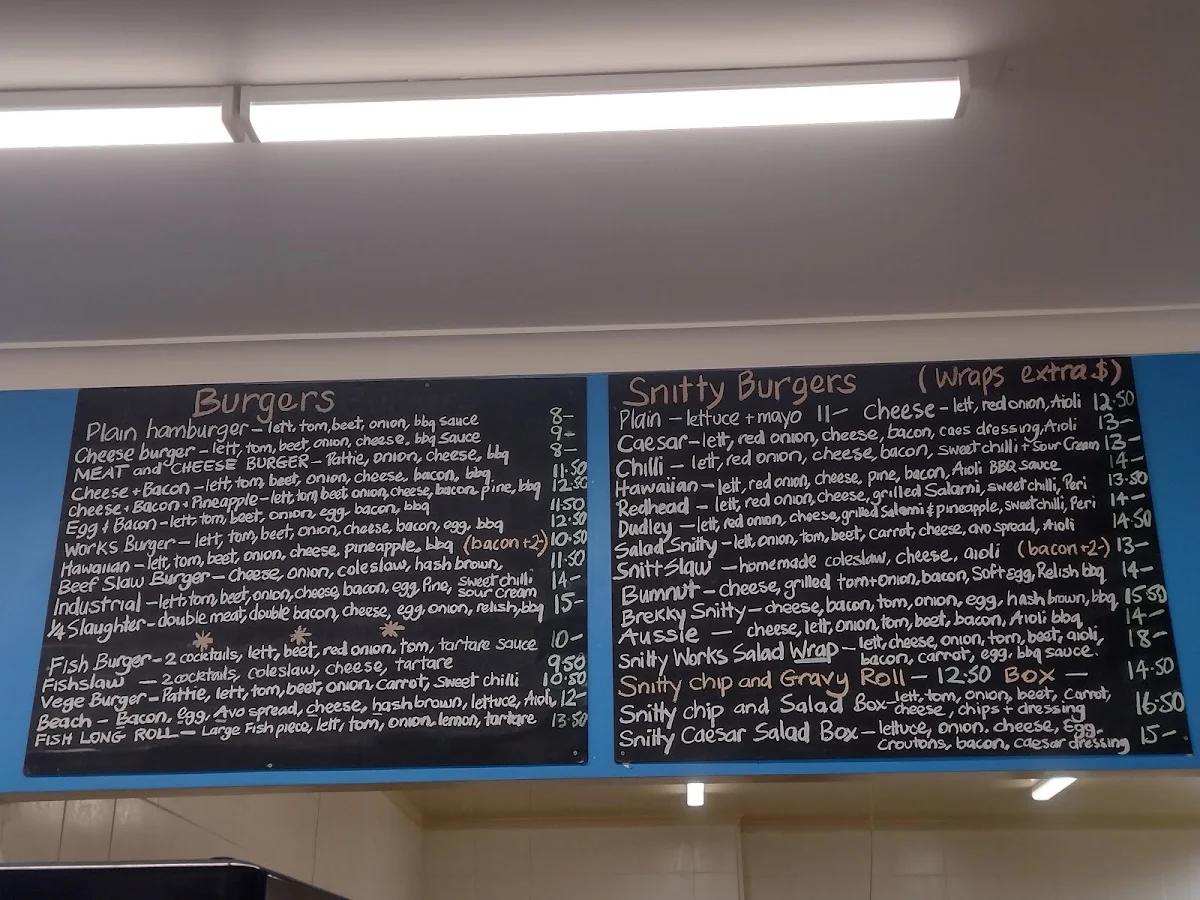 Burgers
Plain hamburger - lett, tom, beet, onion, bbq sauce 8-
Cheese burger - lett, tom, beet, onion, cheese, bbq sauce 9-
MEAT and CHEESE BURGER - Pattie, onion, cheese, bbq 8-
Cheese + Bacon - lett, tom, beet, onion, cheese, bacon, bbq 11.50
Cheese + Bacon + Pineapple - lett, tom, beet, onion, cheese, bacon, pine, bbq 12.50
Egg & Bacon - lett, tom, beet, onion, egg, bacon, bbq 11.50
Works Burger - lett, tom, beet, onion, cheese, bacon, egg, bbq 12.50
Hawaiian - lett, tom, beet, onion, cheese, pineapple, bbq (bacon +2-) 10.50
Beef Slaw Burger - cheese, onion, coleslaw, hash brown, 11.50
Industrial - lett, tom, beet, onion, cheese, bacon, egg, pine, sweet chilli sour cream 14-
1/4 Slaughter - double meat, double bacon, cheese, egg, onion, relish, bbq 15-
Fish Burger - 2 cocktails, lett, beet, red onion, tom, tartare sauce 10-
Fishslaw - 2 cocktails, coleslaw, cheese, tartare 9.50
Vege Burger - Pattie, lett, tom, beet, onion, carrot, sweet chilli 10.50
Beach - Bacon, egg, Avo spread, cheese, hash brown, lettuce, Aioli, 12-
FISH LONG ROLL - Large Fish piece, lett, tom, onion, lemon, tartare 13.50
Snitty Burgers (Wraps extra $)
Plain - lettuce + mayo 11- Cheese - lett, red onion, Aioli 12.50
Caesar - lett, red onion, cheese, bacon, caes dressing, Aioli 13-
Chilli - lett, red onion, cheese, bacon, sweet chilli + Sour Cream 13-
Hawaiian - lett, red onion, cheese, pine, bacon, Aioli BBQ sauce 14-
Redhead - lett, red onion, cheese, grilled Salami, sweet chilli, Peri 13.50
Dudley - lett, red onion, cheese, grilled Salami & pineapple, sweet chilli, Peri 14-
Salad Snitty - lett, onion, tom, beet, carrot, cheese, avo spread, Aioli 14.50
Snitt-Slaw - homemade coleslaw, cheese, aioli (bacon +2-) 13-
Bumnut - cheese, grilled tom + Onion, bacon, Soft egg, Relish bbq 14-
Brekky Snitty - cheese, bacon, tom, onion, egg, hash brown, bbq 15.50
Aussie - cheese, lett, onion, tom, beet, bacon, Aioli bbq 14-
Snitty Works Salad Wrap - lett, cheese, onion, tom, beet, aioli, 18-
bacon, carrot, egg, bbq sauce.
Snitty chip and Gravy Roll - 12.50 BOX - 14.50
Snitty chip and Salad Box - lett, tom, onion, beet, carrot, 16.50
cheese, chips + dressing
Snitty Caesar Salad Box - lettuce, onion, cheese, egg, 15-
croutons, bacon, caesar dressing